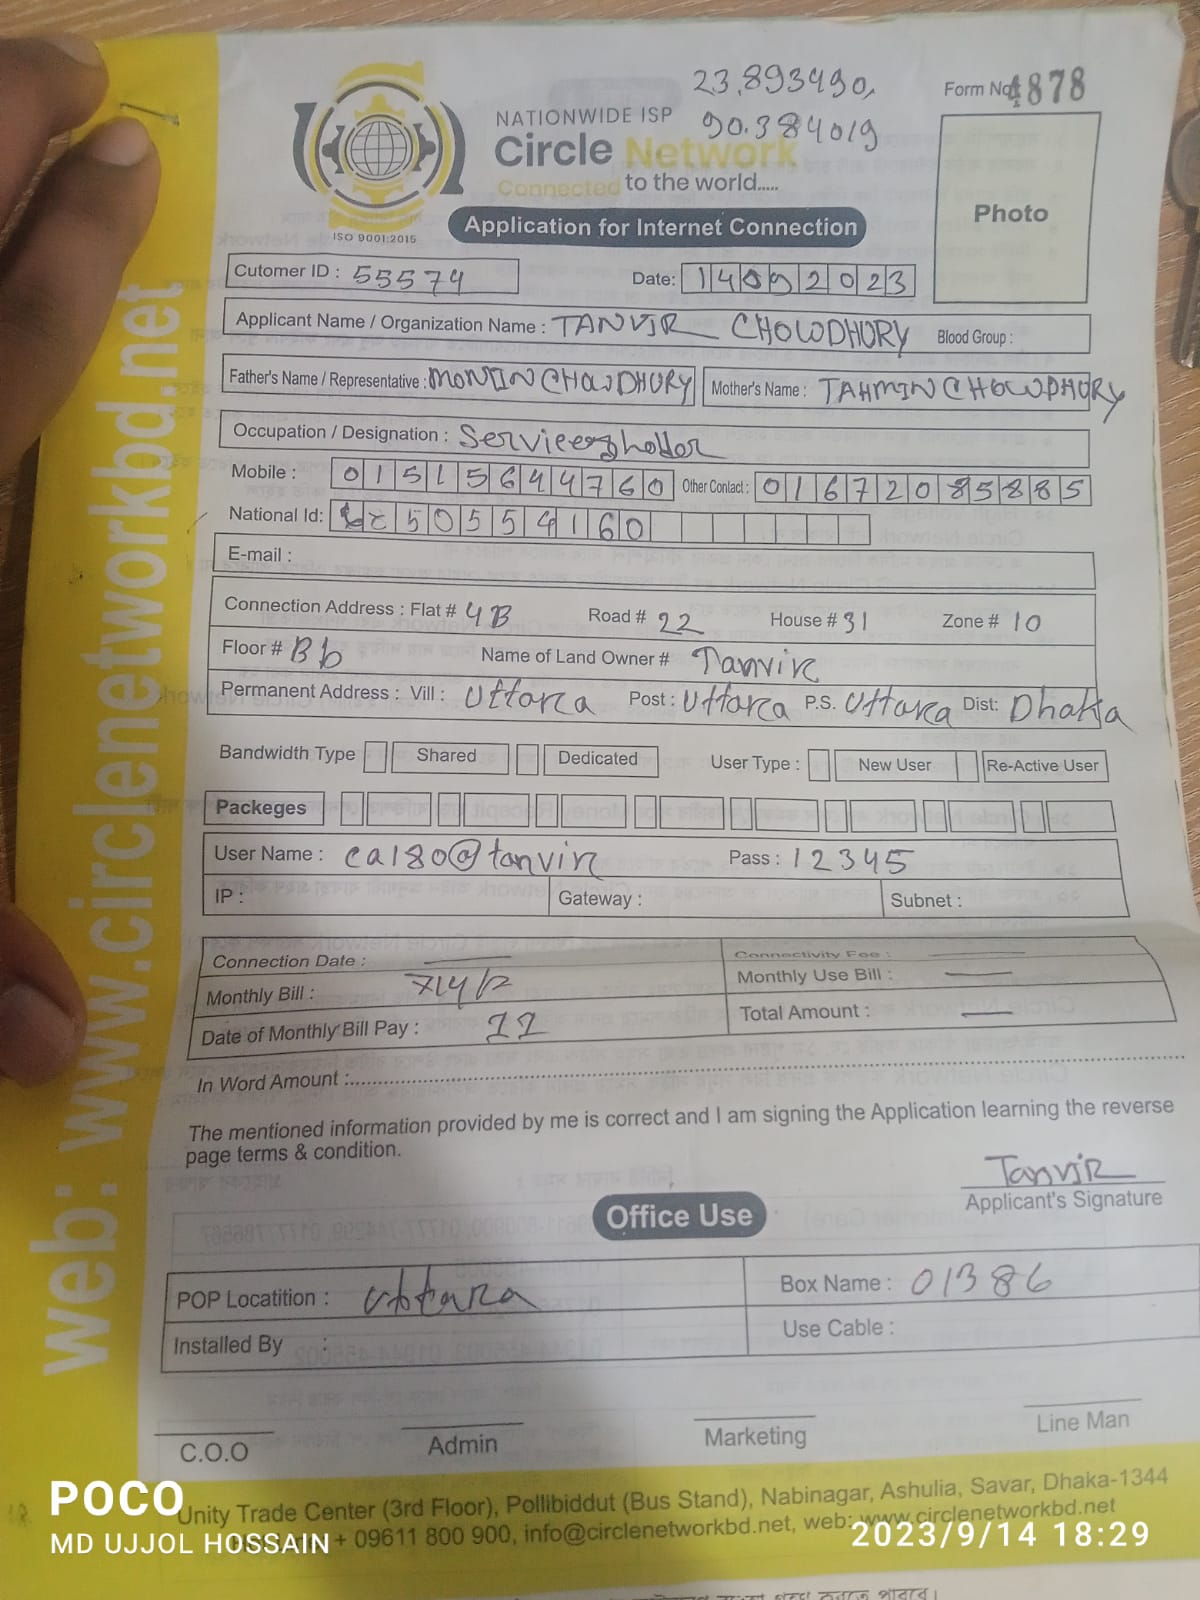 23.893490,
90.384019
Form No 4878
NATIONWIDE ISP
Circle Network
Connected to the world.....
ISO 9001:2015
Application for Internet Connection
Photo
Cutomer ID : 55574
Date: 14092023
Applicant Name / Organization Name : TANVIR CHOWDHORY Blood Group :
Father's Name / Representative : MONIN CHOWDHURY Mother's Name : TAHMIN CHOWDHURY
Occupation / Designation : Service holder
Mobile : 01515644760 Other Contact : 01672085885
National Id: 505554160
E-mail :
Connection Address : Flat # 4B Road # 22 House # 31 Zone # 10
Floor # Bb Name of Land Owner # Tanvir
Permanent Address : Vill : Uttara Post : Uttara P.S. Uttara Dist: Dhaka
Bandwidth Type Shared Dedicated User Type : New User Re-Active User
Packeges
User Name : ca180@tanvir Pass : 12345
IP : Gateway : Subnet :
Connection Date : Connectivity Fee :
Monthly Bill : 714/2 Monthly Use Bill :
Date of Monthly Bill Pay : 11 Total Amount :
In Word Amount :
The mentioned information provided by me is correct and I am signing the Application learning the reverse
page terms & condition.
Tanvir
Applicant's Signature
Office Use
POP Locatition : Uttara Box Name : 01386
Installed By : Use Cable :
C.O.O Admin Marketing Line Man
Unity Trade Center (3rd Floor), Pollibiddut (Bus Stand), Nabinagar, Ashulia, Savar, Dhaka-1344
+ 09611 800 900, info@circlenetworkbd.net, web: www.circlenetworkbd.net
web: www.circlenetworkbd.net
POCO
MD UJJOL HOSSAIN
2023/9/14 18:29